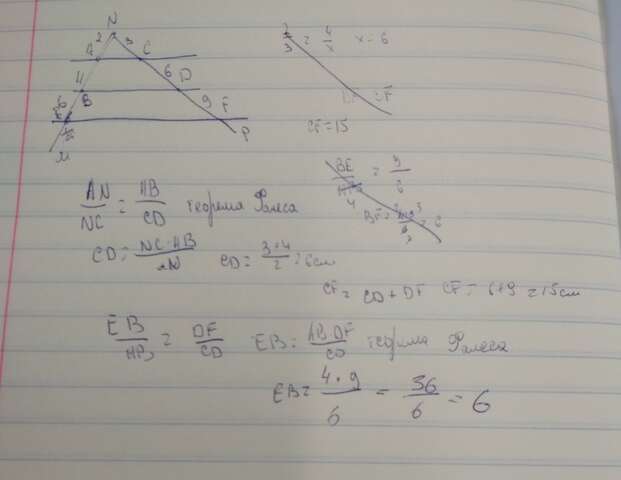 N
2 3
A C
4 6 D
B 9 F
6
E P
M
2/3 = 4/x x = 6
CF = 15
BE/AB = 9/6
4
AN/NC = AB/CD теорема Фалеса
CD = NC·AB/AN CD = 3·4/2 = 6см
CF = CD + DF CF = 6+9 = 15см
EB/AB = DF/CD EB = AB·DF/CD теорема Фалеса
EB = 4·9/6 = 36/6 = 6